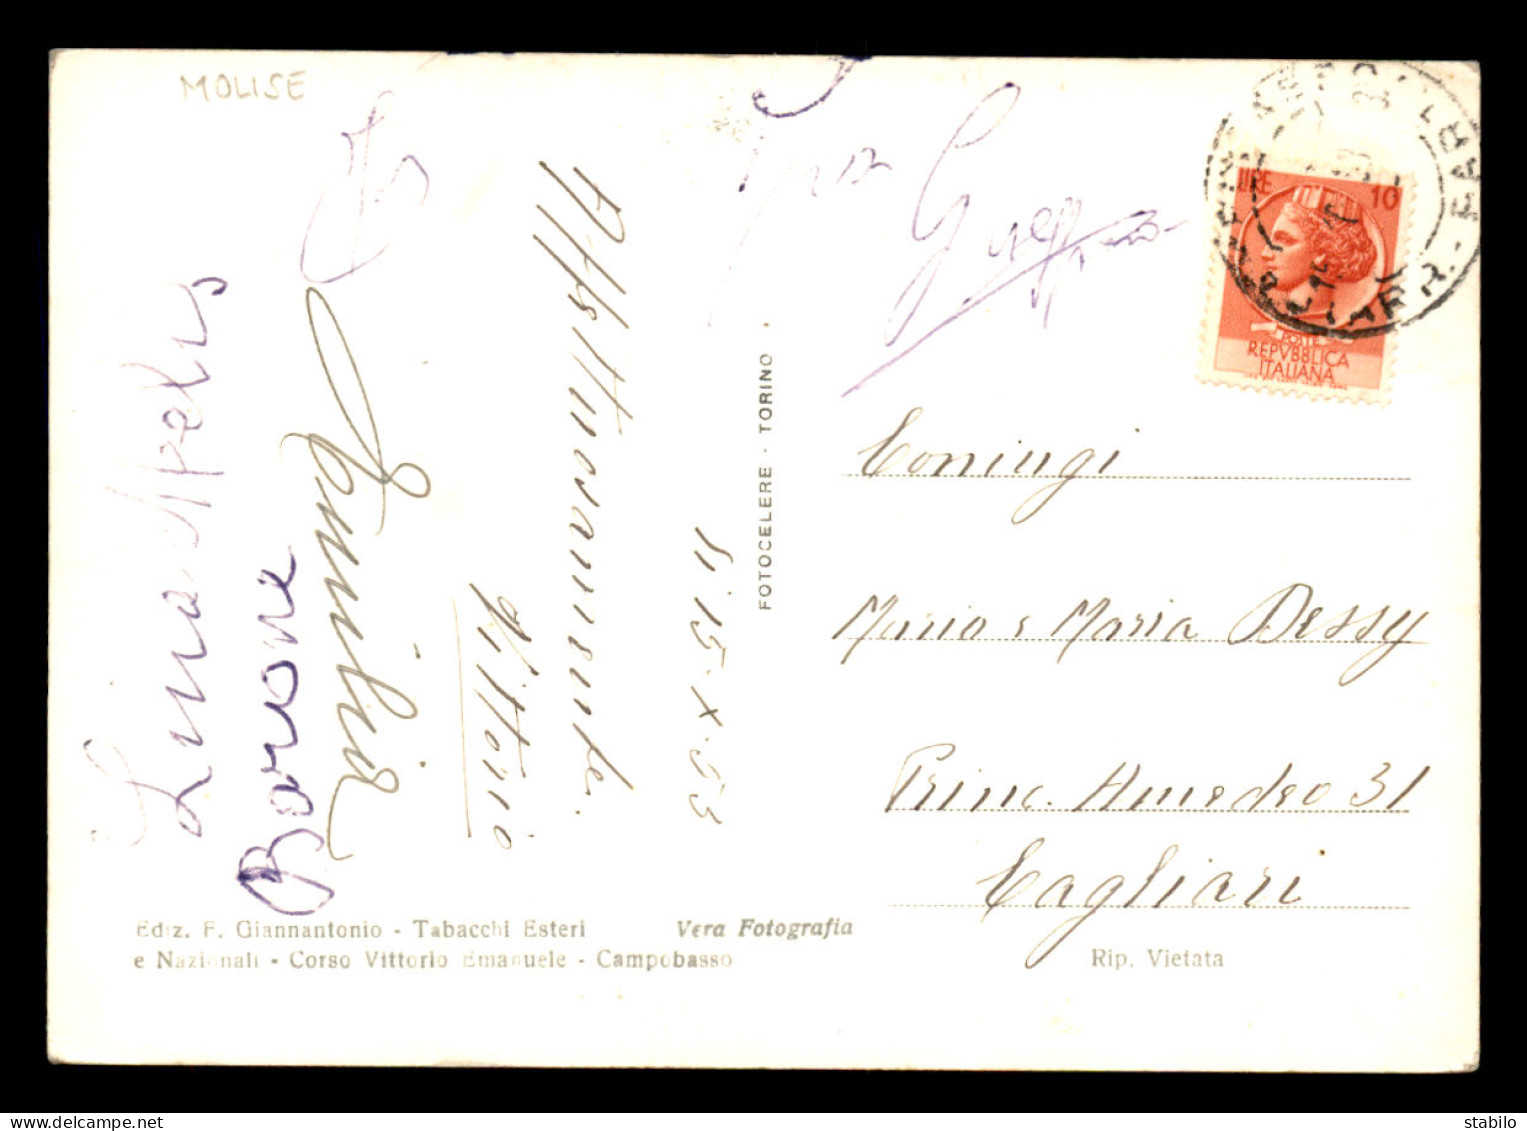 MOLISE
Lina
Barone
Emilia
Affettuosamente.
Vittorio
lì 15-X-53
FOTOCELERE - TORINO
LIRE 10
POSTE
REPVBBLICA
ITALIANA
Coniugi
Mario e Maria Dessy
Princ. Amedeo 31
Cagliari
Ediz. F. Giannantonio - Tabacchi Esteri
e Nazionali - Corso Vittorio Emanuele - Campobasso
Vera Fotografia
Rip. Vietata